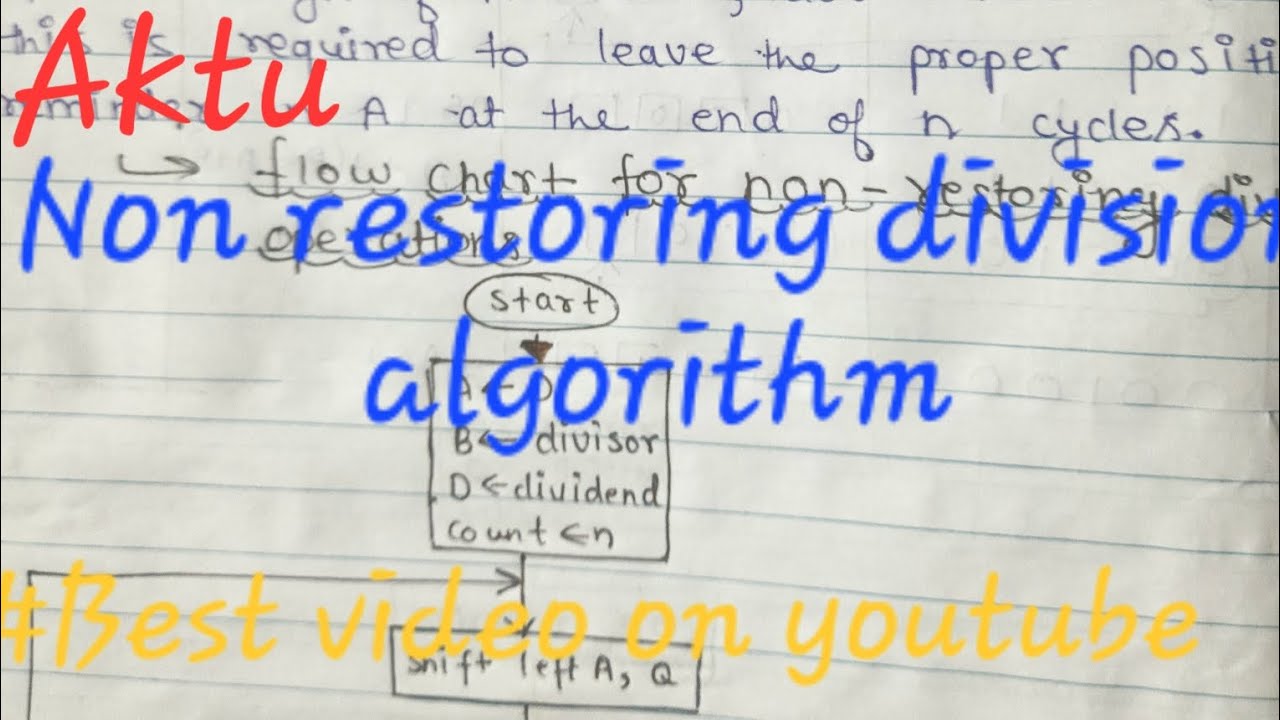 this is required to leave the proper positi
Aktu
A at the end of n cycles.
flow chart for non-restoring di
Non restoring division
operations
start
algorithm
B← divisor
D←dividend
count ←n
#Best video on youtube
shift left A, Q